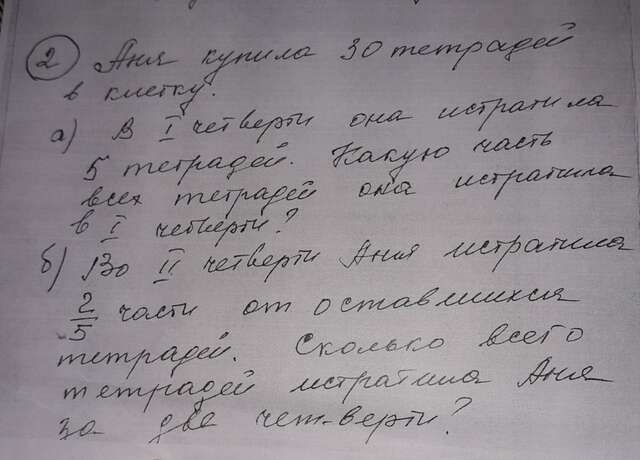 2 Аня купила 30 тетрадей
в клетку.
а) В I четверти она истратила
5 тетрадей. Какую часть
всех тетрадей она истратила
в I четверти?
б) Во II четверти Аня истратила
2/5 части от оставшихся
тетрадей. Сколько всего
тетрадей истратила Аня
за две чет-верти?